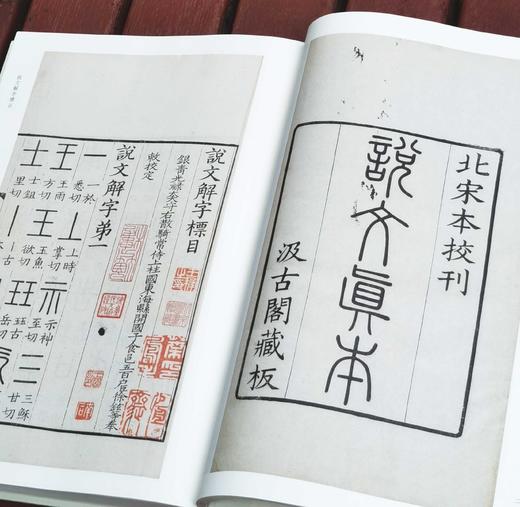 北宋本校刊
説文眞本
汲古閣藏板
説文解字標目
銀青光禄大夫守右散騎常侍上柱國東海縣開國子食邑五百户臣徐鉉等奉
敕校定
説文解字第一
一 一於悉切
上 上時掌切
示 示神至切
三 三穌甘切
王 王雨方切
玉 玉魚欲切
珏 珏古岳切
士 士鉏里切